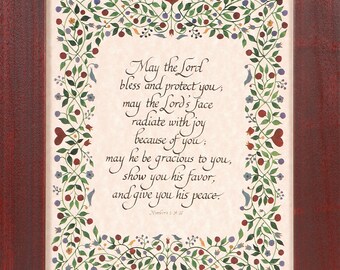 May the Lord
bless and protect you;
may the Lord's face
radiate with joy
because of you;
may he be gracious to you,
show you his favor,
and give you his peace.